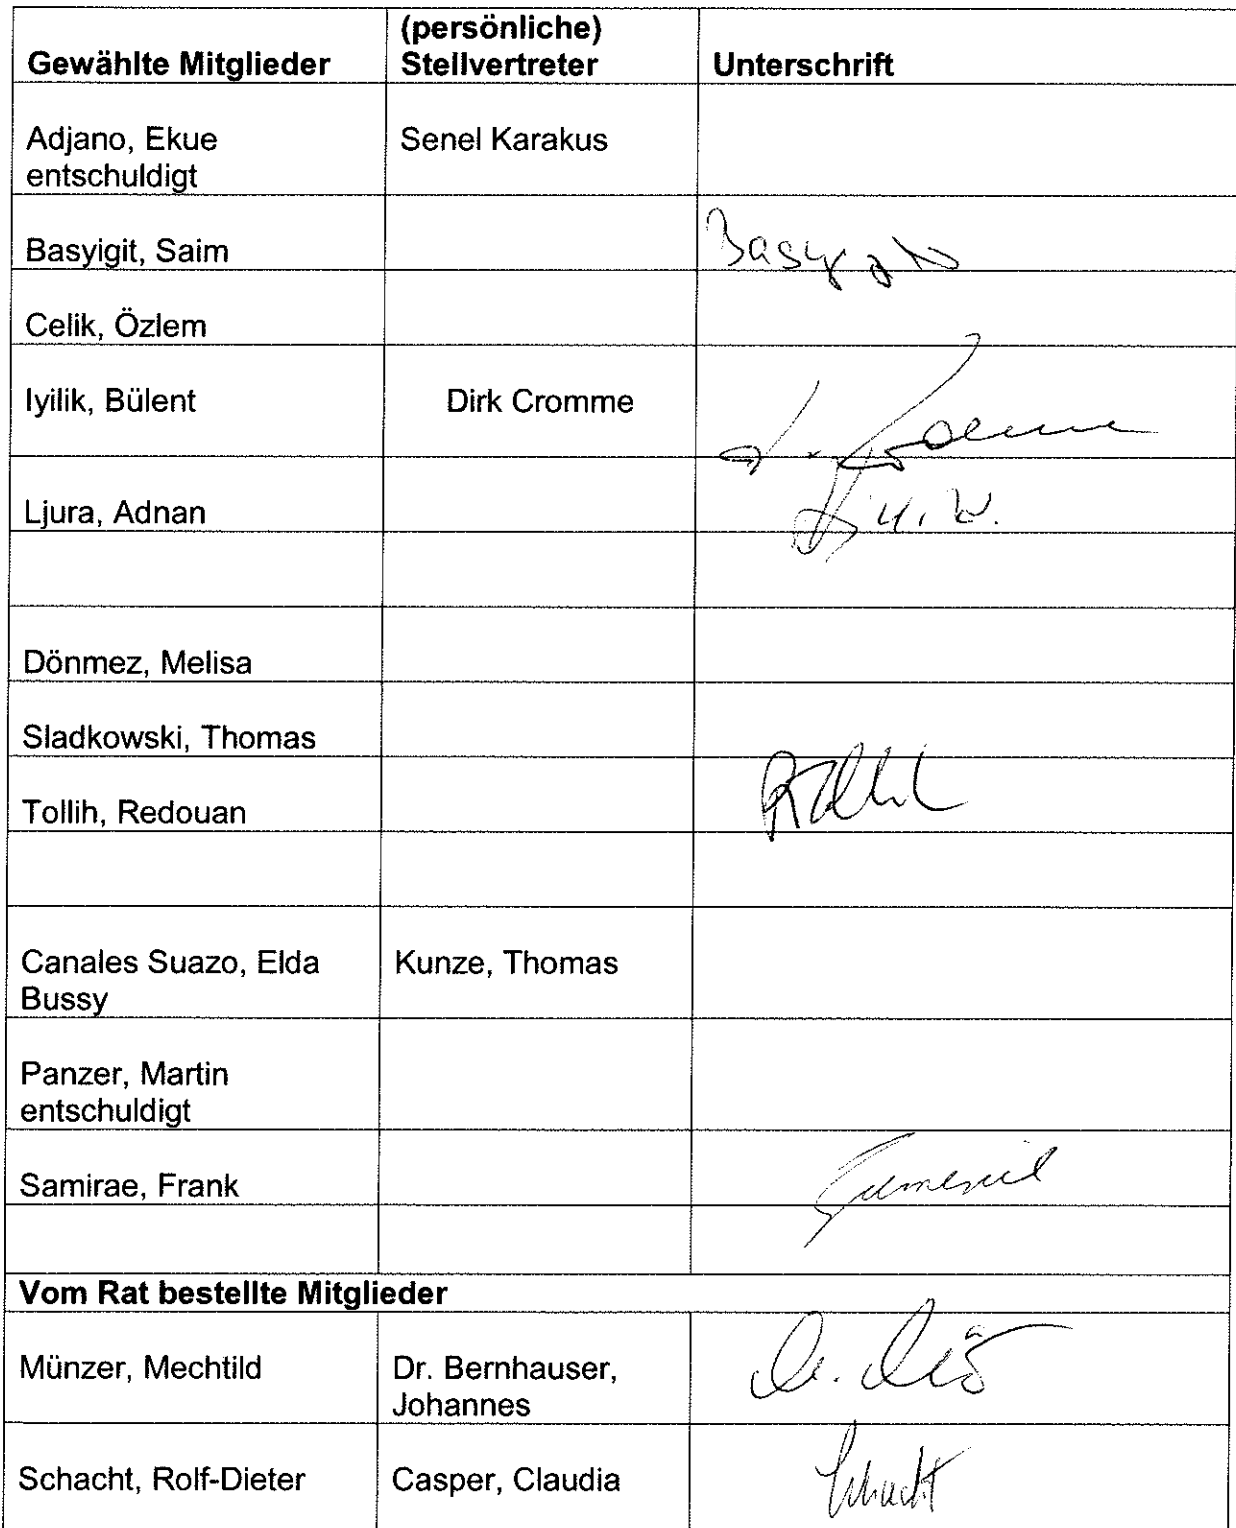 (persönliche)
Gewählte Mitglieder Stellvertreter Unterschrift
Adjano, Ekue Senel Karakus
entschuldigt
Basyigit, Saim
Celik, Özlem
Iyilik, Bülent Dirk Cromme
Ljura, Adnan
Dönmez, Melisa
Sladkowski, Thomas
Tollih, Redouan
Canales Suazo, Elda Kunze, Thomas
Bussy
Panzer, Martin
entschuldigt
Samirae, Frank
Vom Rat bestellte Mitglieder
Münzer, Mechtild Dr. Bernhauser,
Johannes
Schacht, Rolf-Dieter Casper, Claudia Schacht